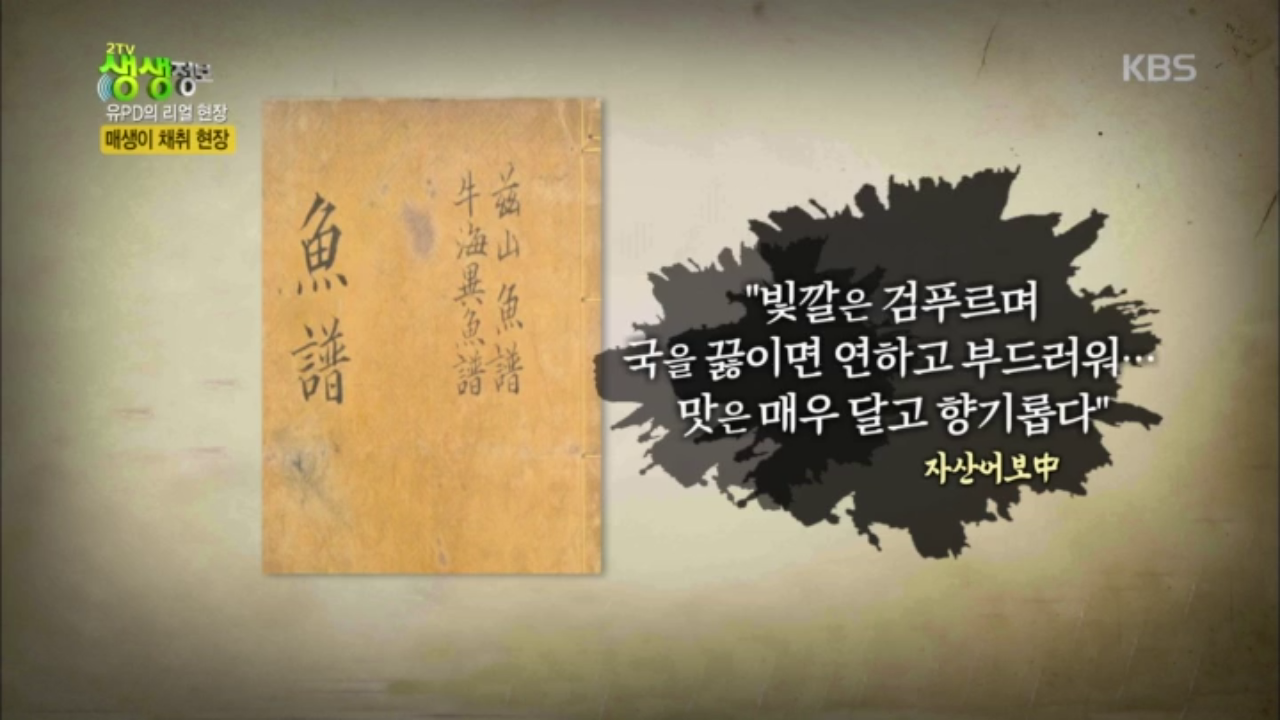 2TV
생생정보
유PD의 리얼 현장
매생이 채취 현장
KBS
茲山魚譜
牛海異魚譜
魚譜
"빛깔은 검푸르며
국을 끓이면 연하고 부드러워…
맛은 매우 달고 향기롭다"
자산어보中